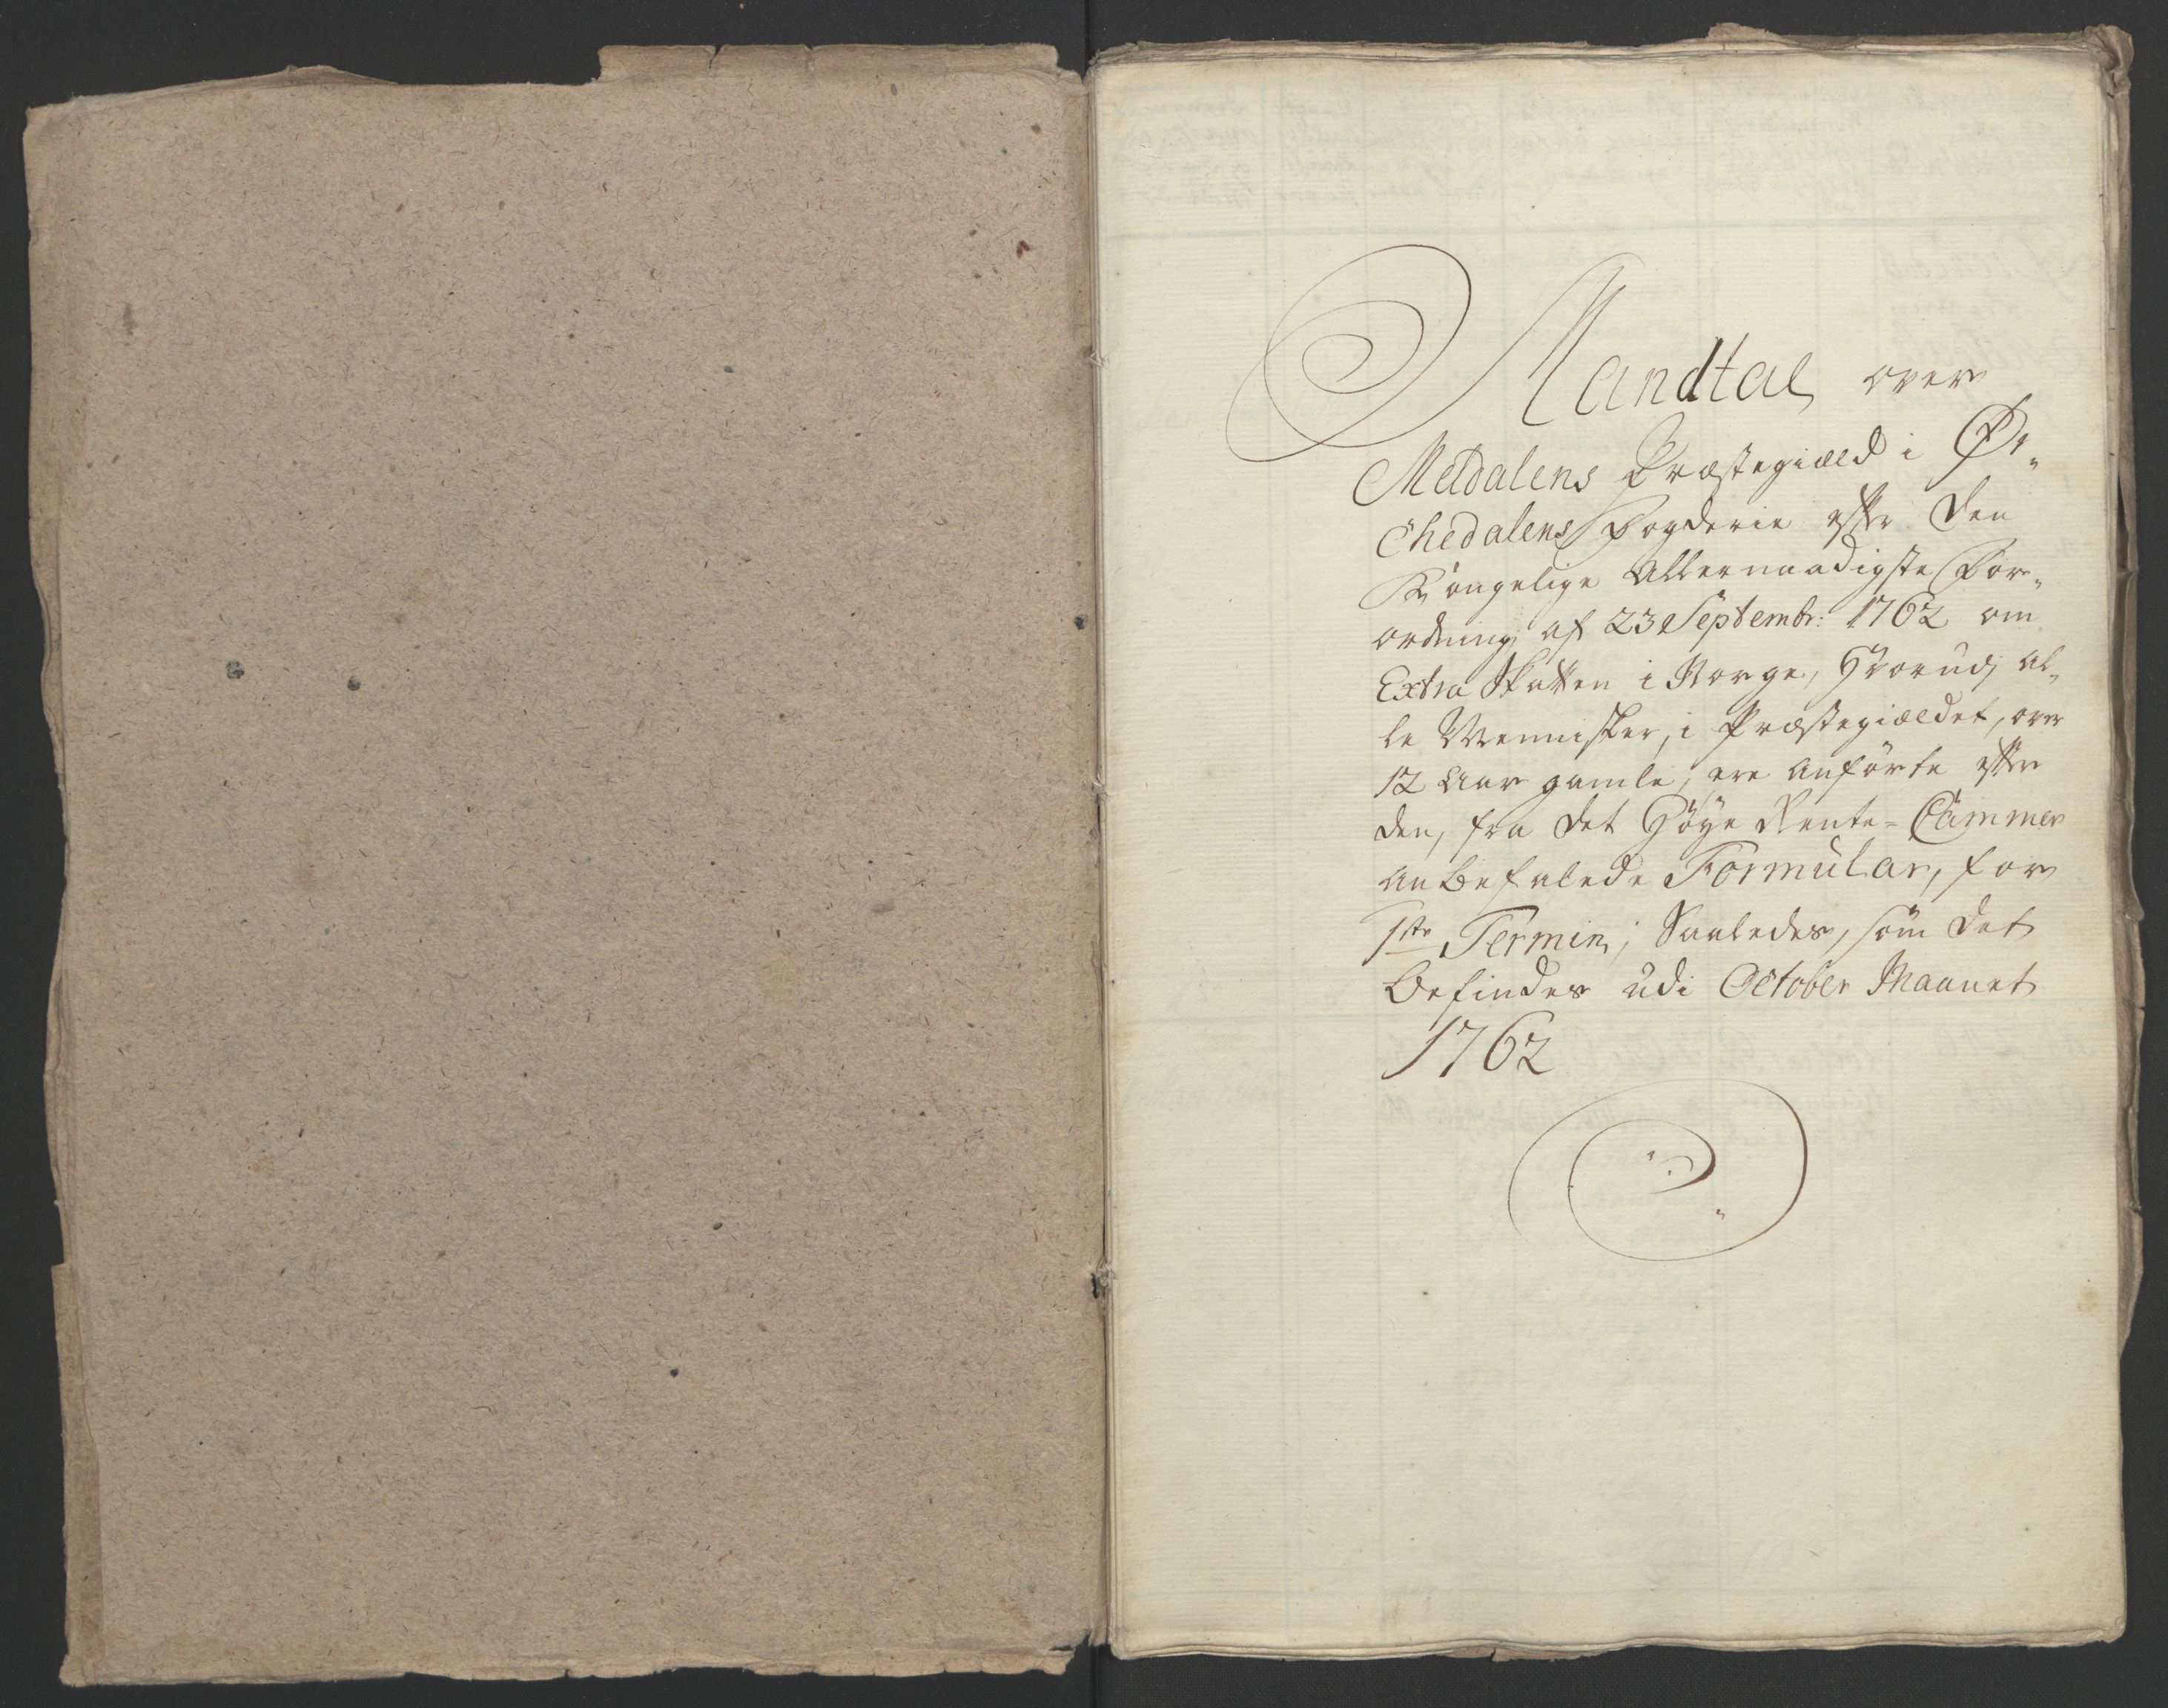 Mandtal over
Meldalens Præstegiæld i Ør„
chedalens Fogderie efter den
Kongelige Allernaadigste For„
ordning af 23 Septembr: 1762 om
Extra Skatten i Norge, Hvorudj al„
le Mennisker, i Præstegiældet, over
12 Aar gamle, ere anførte efter
den, fra det Høye Rente-Cammer
anbefalede Formular, for
1ste Termin; Saaledes, som det
befindes udi October Maanet
1762